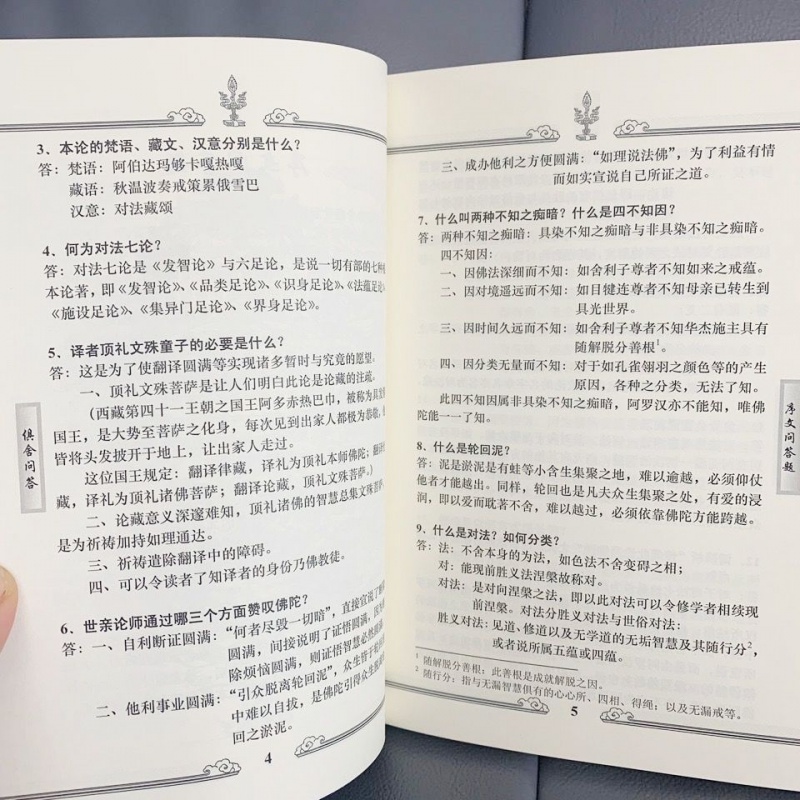 3、本论的梵语、藏文、汉意分别是什么？
答：梵语：阿伯达玛够卡嘎热嘎
藏语：秋温波奏戒策累俄雪巴
汉意：对法藏颂
4、何为对法七论？
答：对法七论是《发智论》与六足论，是说一切有部的七种
本论著，即《发智论》、《品类足论》、《识身足论》、《法蕴足论》、
《施设足论》、《集异门足论》、《界身足论》。
5、译者顶礼文殊童子的必要是什么？
答：这是为了使翻译圆满等实现诸多暂时与究竟的愿望。
一、顶礼文殊菩萨是让人们明白此论是论藏的注疏。
(西藏第四十一王朝之国王阿多赤热巴巾，被称为具发
国王，是大势至菩萨之化身，每次见到出家人都极为恭敬，
皆将头发披开于地上，让出家人走过。
这位国王规定：翻译律藏，译礼为顶礼本师佛陀；翻译
藏，译礼为顶礼诸佛菩萨；翻译论藏，顶礼文殊菩萨。)
二、论藏意义深邃难知，顶礼诸佛的智慧总集文殊菩萨
是为祈祷加持如理通达。
三、祈祷遣除翻译中的障碍。
四、可以令读者了知译者的身份乃佛教徒。
6、世亲论师通过哪三个方面赞叹佛陀？
答：一、自利断证圆满：“何者尽毁一切暗”，直接宣说了断
圆满，间接说明了证悟圆满，因为
除烦恼圆满，则证悟智慧必然圆满。
二、他利事业圆满：“引众脱离轮回泥”，众生皆于轮
中难以自拔，是佛陀引得众生脱离
回之淤泥。
俱舍问答
4
三、成办他利之方便圆满：“如理说法佛”，为了利益有情
而如实宣说自己所证之道。
7、什么叫两种不知之痴暗？什么是四不知因？
答：两种不知之痴暗：具染不知之痴暗与非具染不知之痴暗。
四不知因：
一、因佛法深细而不知：如舍利子尊者不知如来之戒蕴。
二、因对境遥远而不知：如目犍连尊者不知母亲已转生到
具光世界。
三、因时间久远而不知：如舍利子尊者不知华杰施主具有
随解脱分善根1。
四、因分类无量而不知：对于如孔雀翎羽之颜色等的产生
原因，各种之分类，无法了知。
此四不知因属非具染不知之痴暗，阿罗汉亦不能知，唯佛
陀能一一了知。
8、什么是轮回泥？
答：泥是淤泥是有蛙等小含生集聚之地，难以逾越，必须仰仗
他者才能越出。同样，轮回也是凡夫众生集聚之处，有爱的浸
润，即以爱而耽著不舍，难以越过，必须依靠佛陀方能跨越。
9、什么是对法？如何分类？
答：法：不舍本身的为法，如色法不舍变碍之相；
对：能现前胜义法涅槃故称对。
对法：是对向涅槃之法，即以此对法可以令修学者相续现
前涅槃。对法分胜义对法与世俗对法：
胜义对法：见道、修道以及无学道的无垢智慧及其随行分2，
或者说所属五蕴或四蕴。
1 随解脱分善根：此善根是成就解脱之因。
2 随行分：指与无漏智慧俱有的心心所、四相、得绳；以及无漏戒等。
5
序文问答题